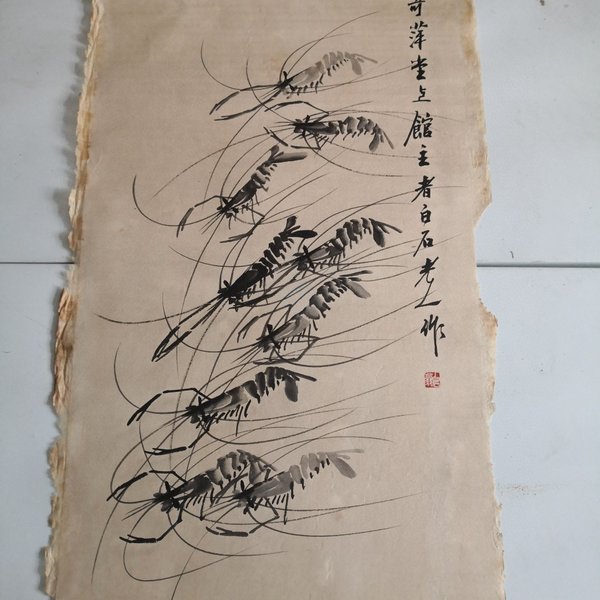 萍堂上館主者白石老人作